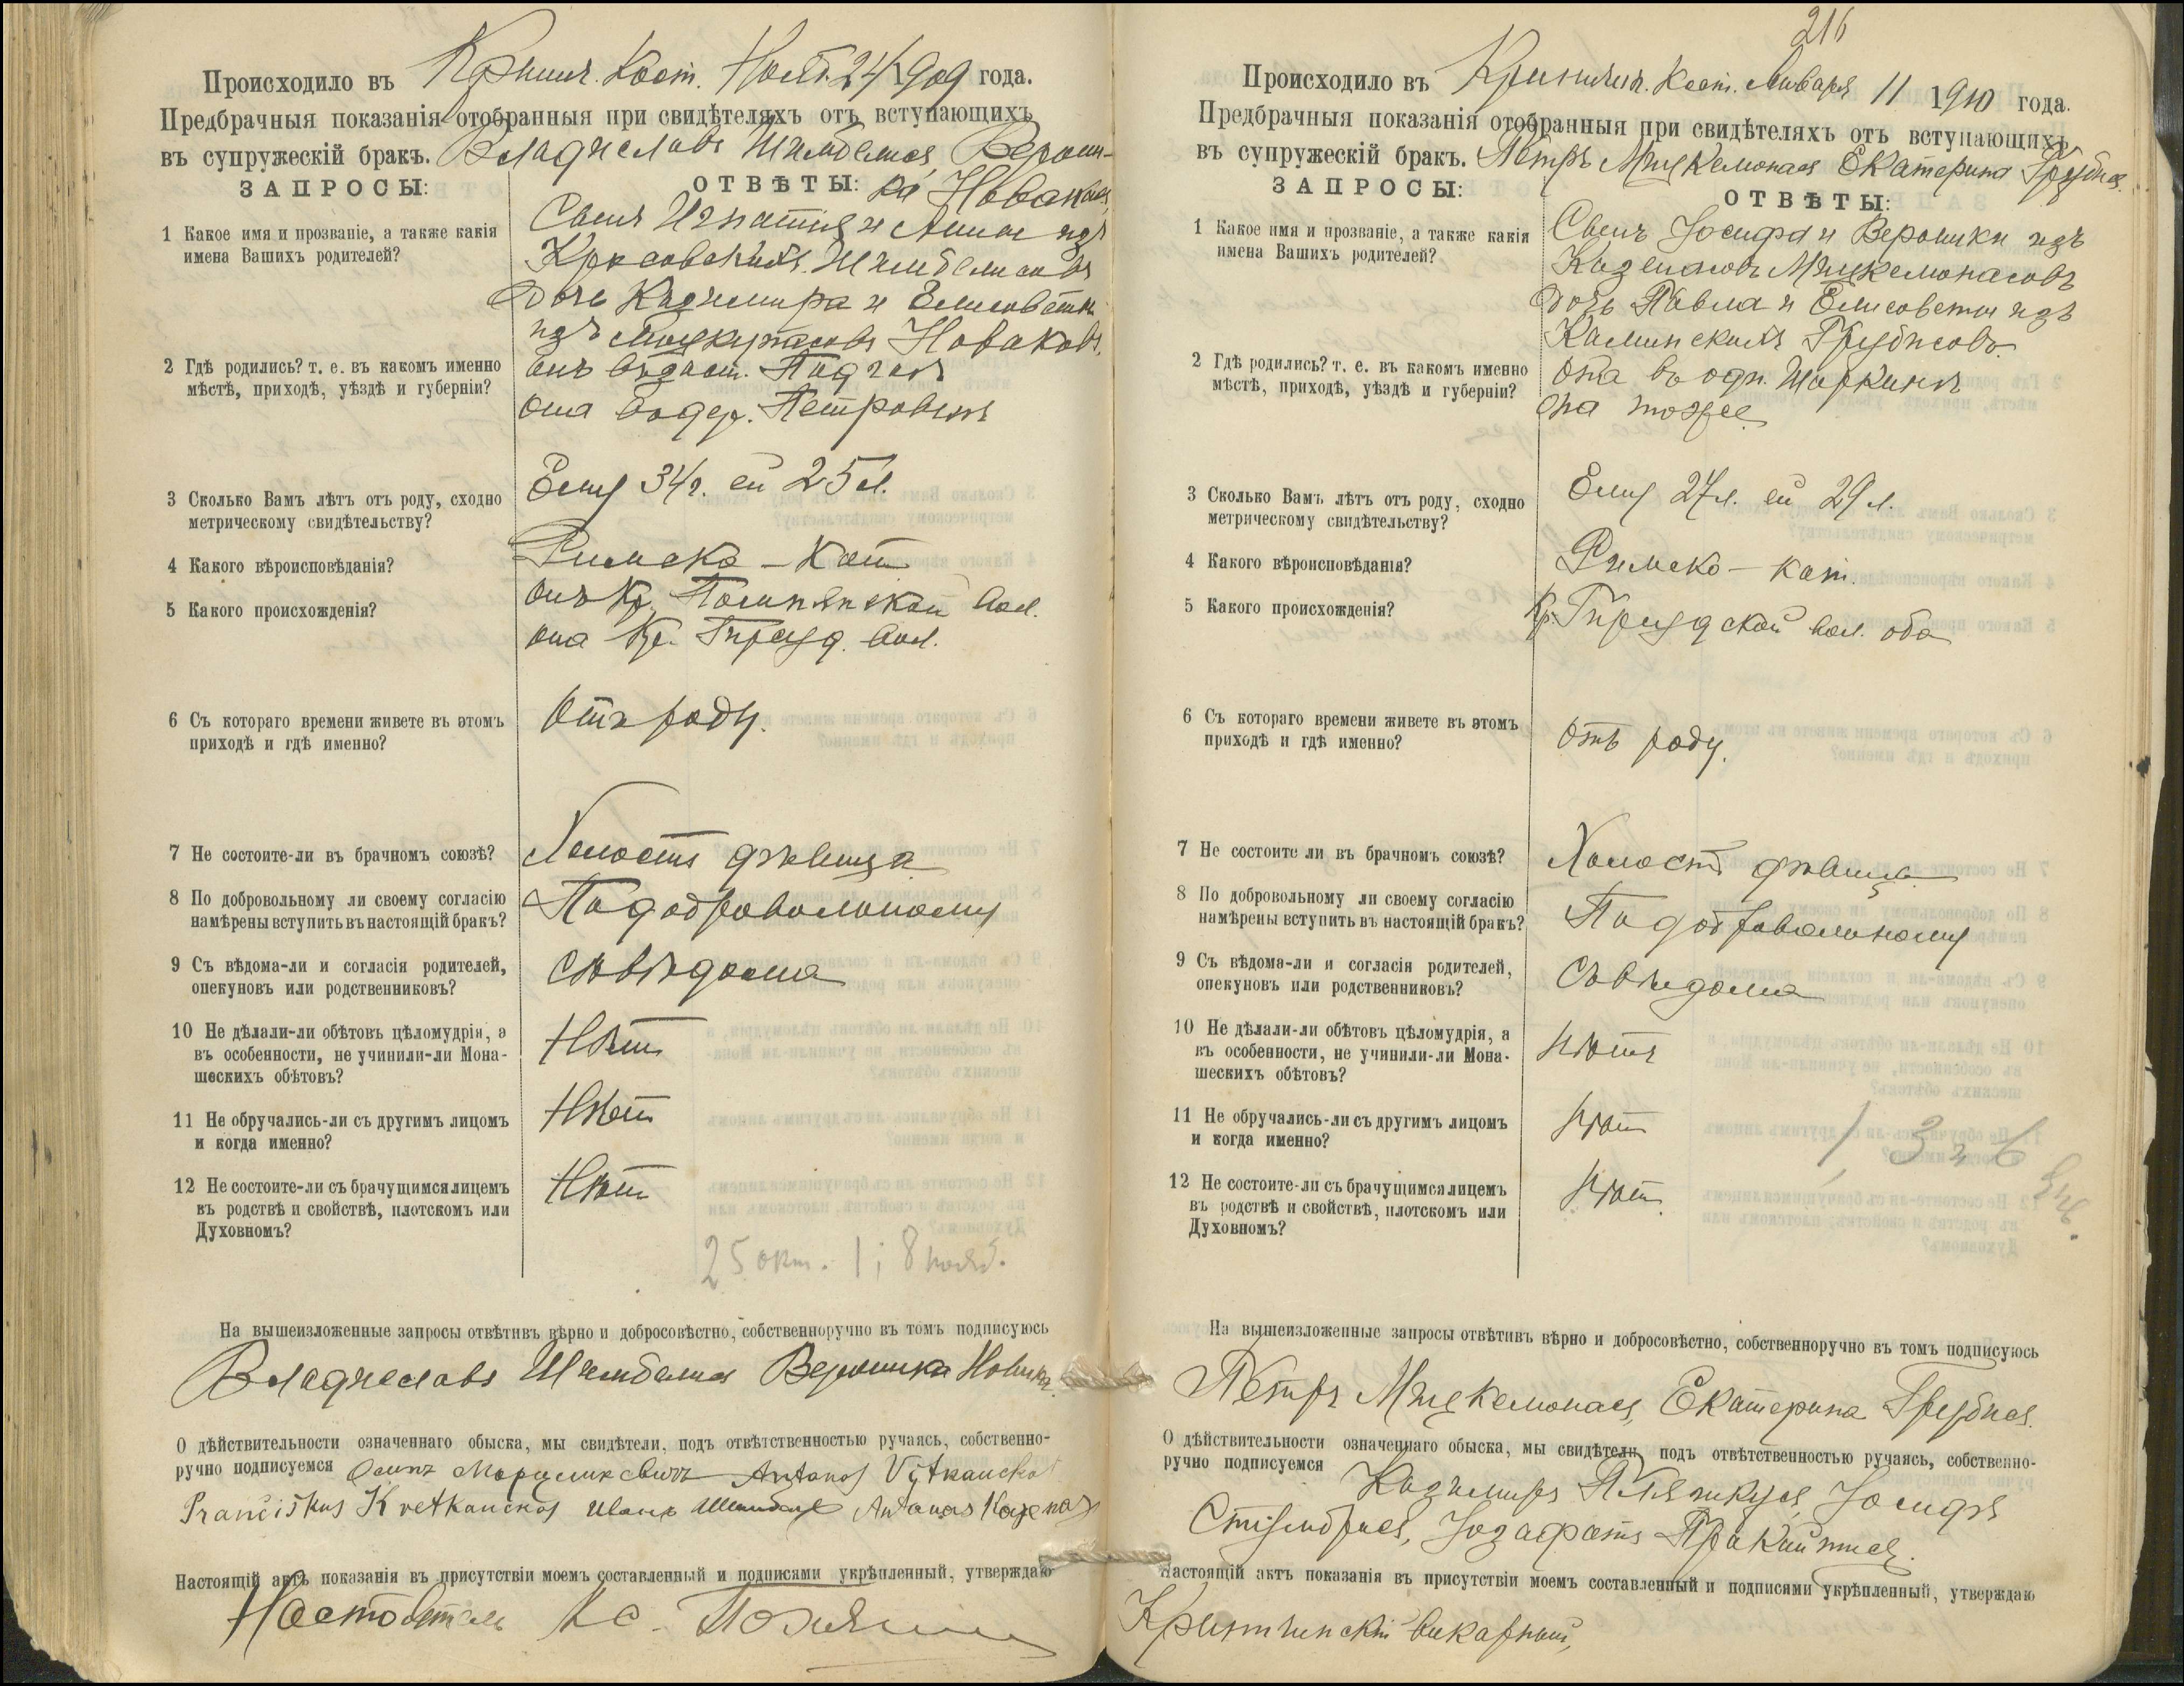 Происходило въ Кринч. Кост. Нояб. 24 1909 года.
Предбрачныя показанія отобранныя при свидѣтеляхъ отъ вступающихъ
въ супружескій бракъ. Владиславъ Шимбелись Верони-
ЗАПРОСЫ: ОТВѢТЫ: ка Новакась
1 Какое имя и прозваніе, а также какія
имена Вашихъ родителей?
Сынъ Игнатія и Анны изъ
Дочь Казимира и Елисаветы
изъ Новаковъ.
2 Гдѣ родились? т. е. въ какомъ именно
мѣстѣ, приходѣ, уѣздѣ и губерніи?
она въ дер.
3 Сколько Вамъ лѣтъ отъ роду, сходно
метрическому свидѣтельству?
Ему 34 г. ей 25 л.
4 Какого вѣроисповѣданія?
Римско-Кат
5 Какого происхожденія?
онъ Кр. вол.
она Кр. вол.
6 Съ котораго времени живете въ этомъ
приходѣ и гдѣ именно?
Отъ роду.
7 Не состоите-ли въ брачномъ союзѣ?
Холостъ дѣвица
8 По добровольному ли своему согласію
намѣрены вступить въ настоящій бракъ?
По добровольному
9 Съ вѣдома-ли и согласія родителей,
опекуновъ или родственниковъ?
Съ вѣдома
10 Не дѣлали-ли обѣтовъ цѣломудрія, а
въ особенности, не учинили-ли Мона-
шескихъ обѣтовъ?
Нѣтъ
11 Не обручались-ли съ другимъ лицомъ
и когда именно?
Нѣтъ
12 Не состоите-ли съ брачущимся лицемъ
въ родствѣ и свойствѣ, плотскомъ или
Духовномъ?
Нѣтъ
25 окт. 1 и 8 нояб.
На вышеизложенные запросы отвѣтивъ вѣрно и добросовѣстно, собственноручно въ томъ подписуюсь
Владиславъ Шимбелись Вероника
О дѣйствительности означеннаго обыска, мы свидѣтели, подъ отвѣтственностью ручаясь, собственно-
ручно подписуемся Осипъ Antanas
Pranciškus Kvetkauckas Иванъ Antanas
Настоящій актъ показанія въ присутствіи моемъ составленный и подписями укрѣпленный, утверждаю
Настоятель Кс.
216
Происходило въ Кринчин. Кост. Января 11 1910 года.
Предбрачныя показанія отобранныя при свидѣтеляхъ отъ вступающихъ
въ супружескій бракъ. Петръ Екатерина
ЗАПРОСЫ: ОТВѢТЫ:
1 Какое имя и прозваніе, а также какія
имена Вашихъ родителей?
Сынъ Іосифа и Вероники изъ
дочь Павла и Елисаветы изъ
Каминскихъ
2 Гдѣ родились? т. е. въ какомъ именно
мѣстѣ, приходѣ, уѣздѣ и губерніи?
она тоже
3 Сколько Вамъ лѣтъ отъ роду, сходно
метрическому свидѣтельству?
Ему 27 л. ей 29 л.
4 Какого вѣроисповѣданія?
Римско-кат.
5 Какого происхожденія?
Кр. вол. оба
6 Съ котораго времени живете въ этомъ
приходѣ и гдѣ именно?
Отъ роду.
7 Не состоите ли въ брачномъ союзѣ?
Холостъ дѣвица
8 По добровольному ли своему согласію
намѣрены вступить въ настоящій бракъ?
По добровольному
9 Съ вѣдома-ли и согласія родителей,
опекуновъ или родственниковъ?
Съ вѣдома
10 Не дѣлали-ли обѣтовъ цѣломудрія, а
въ особенности, не учинили-ли Мона-
шескихъ обѣтовъ?
Нѣтъ
11 Не обручались-ли съ другимъ лицомъ
и когда именно?
Нѣтъ
1, 3 и 6
12 Не состоите-ли съ брачущимся лицемъ
въ родствѣ и свойствѣ, плотскомъ или
Духовномъ?
Нѣтъ
На вышеизложенные запросы отвѣтивъ вѣрно и добросовѣстно, собственноручно въ томъ подписуюсь
Петръ Екатерина
О дѣйствительности означеннаго обыска, мы свидѣтели, подъ отвѣтственностью ручаясь, собственно-
ручно подписуемся Казимиръ Іосифъ
Іозафатъ
Настоящій актъ показанія въ присутствіи моемъ составленный и подписями укрѣпленный, утверждаю
викарный,